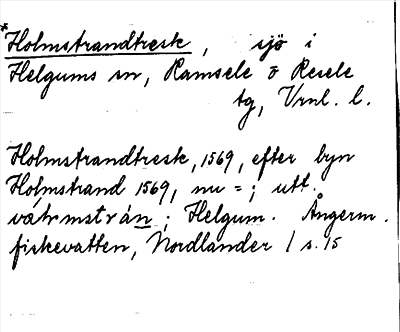 *Holmstrandtresk, sjö i
Helgums sn, Ramsele o Resele
tg, Vrnl. l.
Holmstrandtresk, 1569, efter byn
Holmstrand 1569, nu = ; utt.
; Helgum. Ångerm.
fiskevatten, Nordlander 1 s. 15